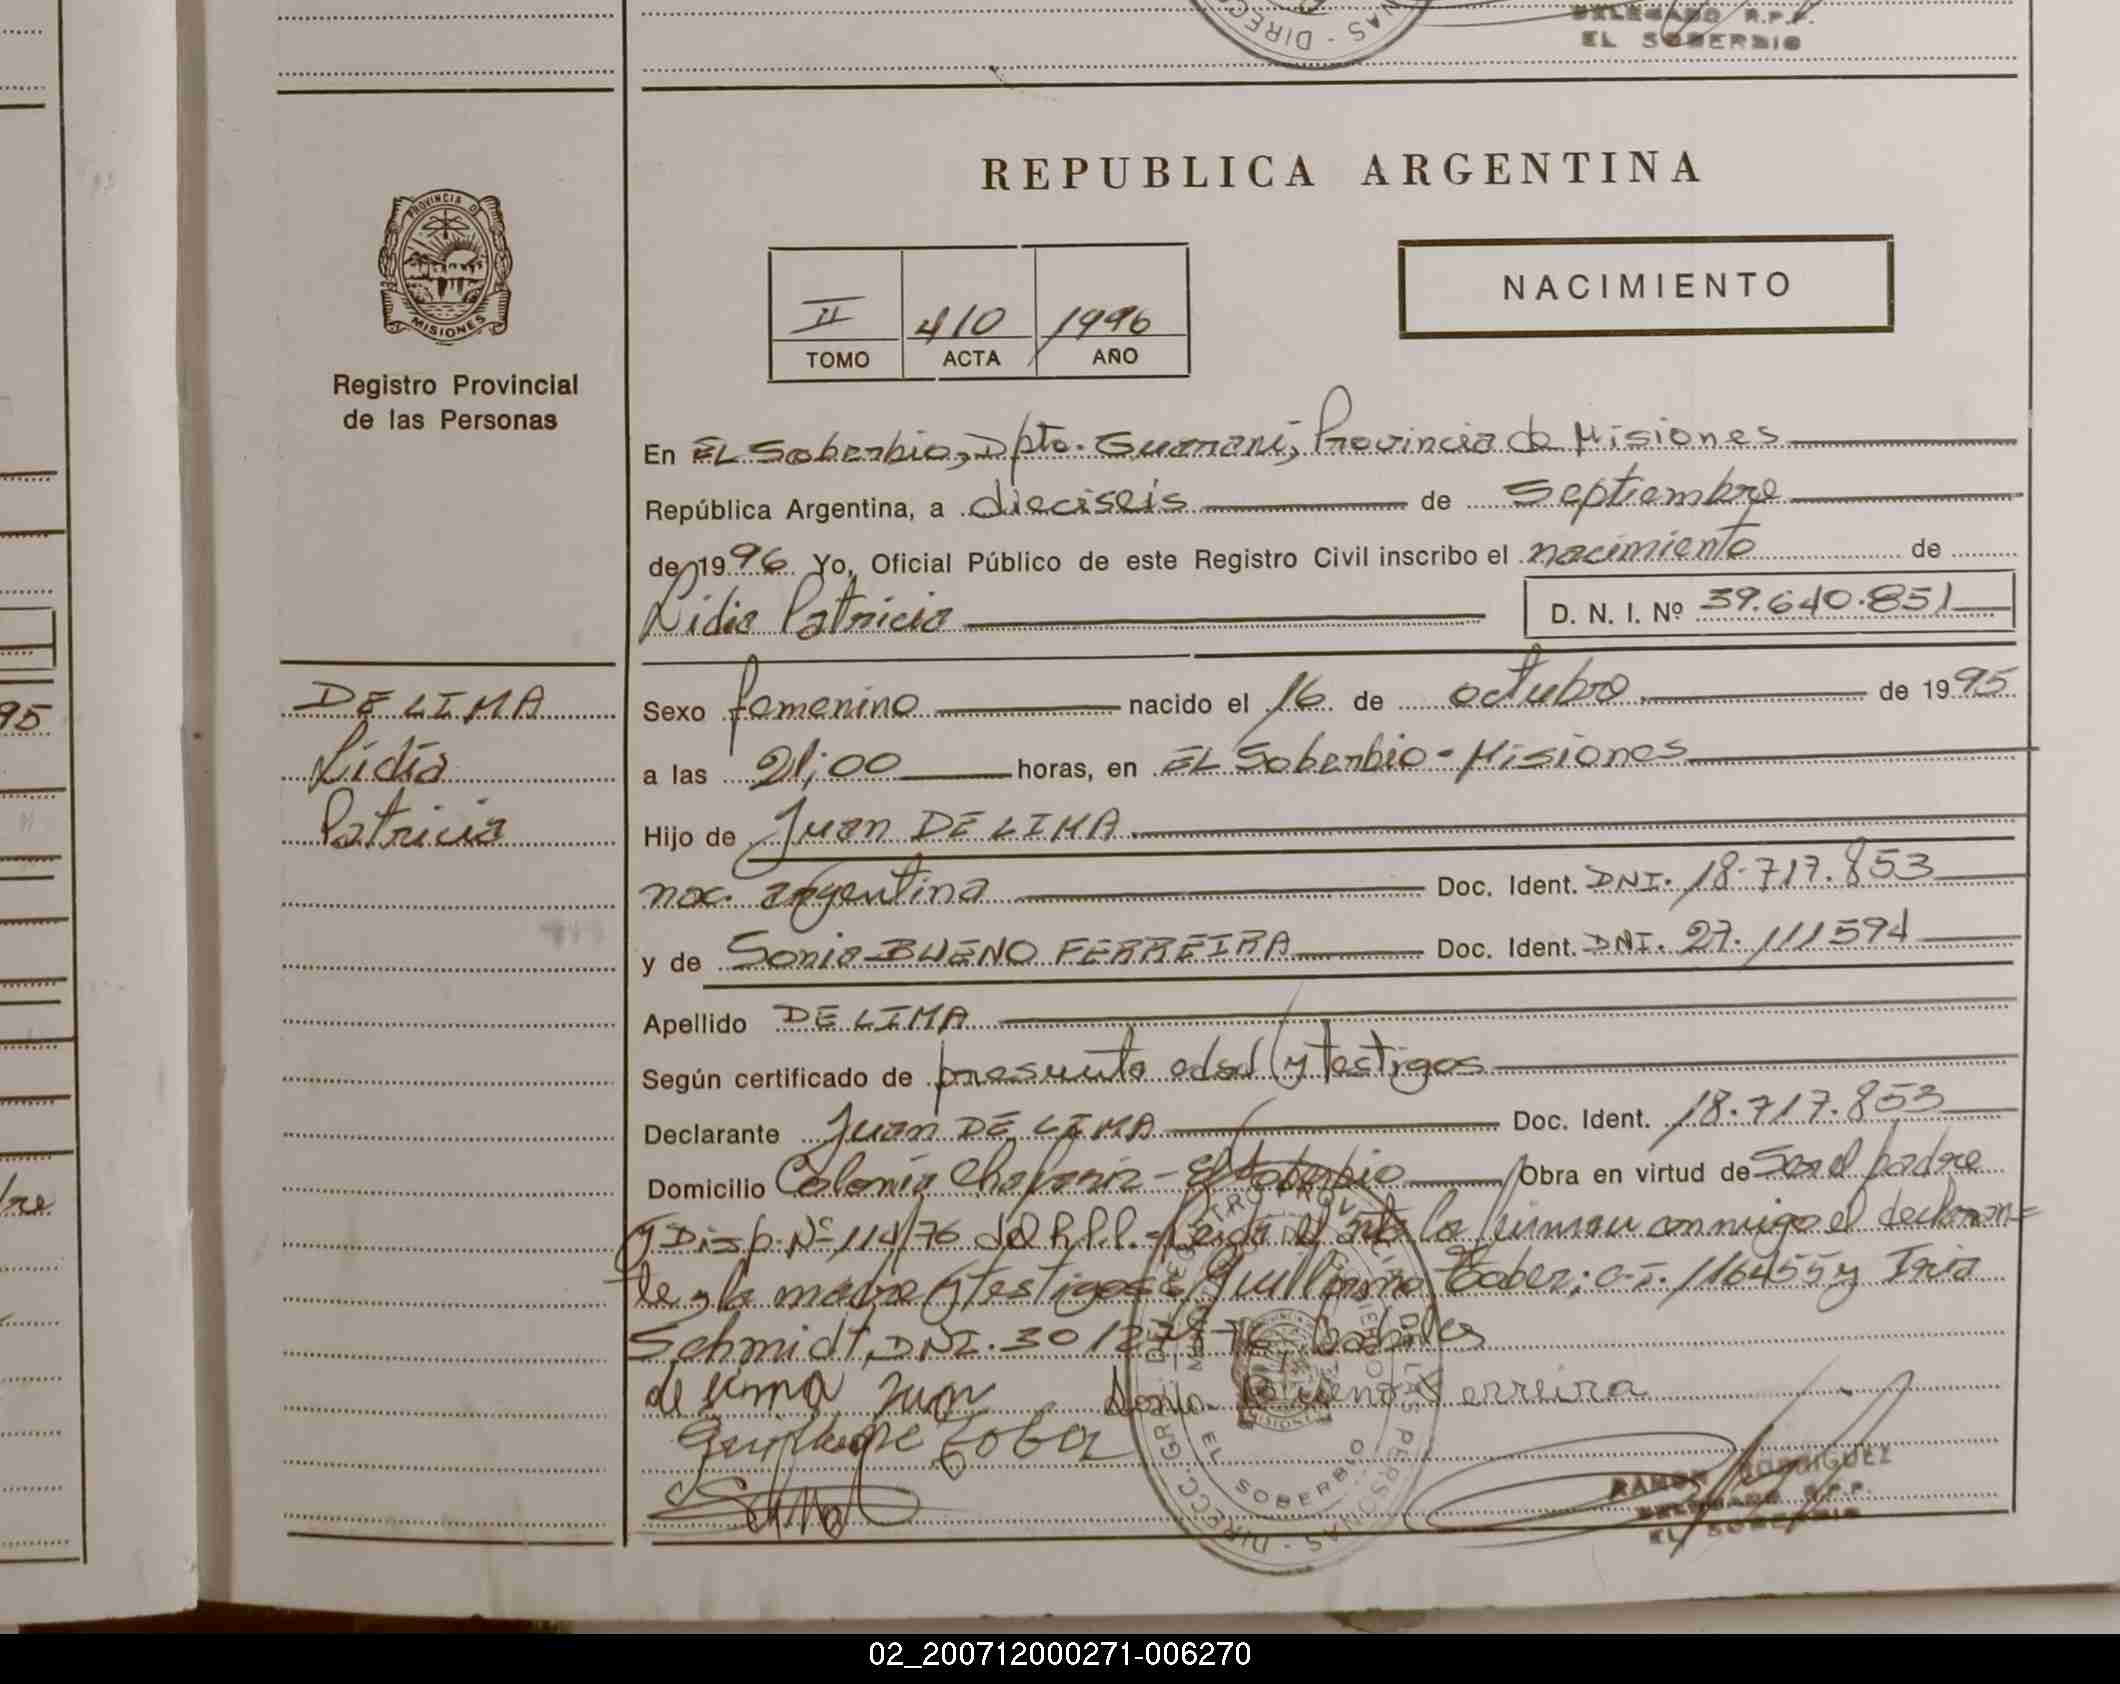 DELEGADO R.P.P.
EL SOBERBIO
REPUBLICA ARGENTINA
PROVINCIA DE
MISIONES
Registro Provincial
de las Personas
II 410 1996
TOMO ACTA AÑO
NACIMIENTO
En EL Soberbio, Dpto. Guaraní, Provincia de Misiones
República Argentina, a dieciseis de Septiembre
de 1996 Yo, Oficial Público de este Registro Civil inscribo el nacimiento de
Lidia Patricia D. N. I. Nº 39.640.851
DE LIMA
Lidia
Patricia
Sexo femenino nacido el 16 de octubre de 1995
a las 21;00 horas, en EL Soberbio - Misiones
Hijo de Juan DE LIMA
nac. argentina Doc. Ident. DNI. 18.717.853
y de Sonia BUENO FERREIRA Doc. Ident. DNI. 27.111594
Apellido DE LIMA
Según certificado de presunta edad y testigos
Declarante Juan DE LIMA Doc. Ident. 18.717.853
Domicilio Colonia Chafariz - El Soberbio Obra en virtud de Ser el padre
y Disp. Nº 114/76 del R.P.P. - Leida el acta la firman conmigo el declaran=
te y la madre y testigos: Guillermo Tober; C.I. 116455 y Iria
Schmidt, DNI. 30127 habiles
de lima Juan Sonia Bueno Ferreira
RAMON RODRIGUEZ
DELEGADO R.P.P.
EL SOBERBIO
02_200712000271-006270